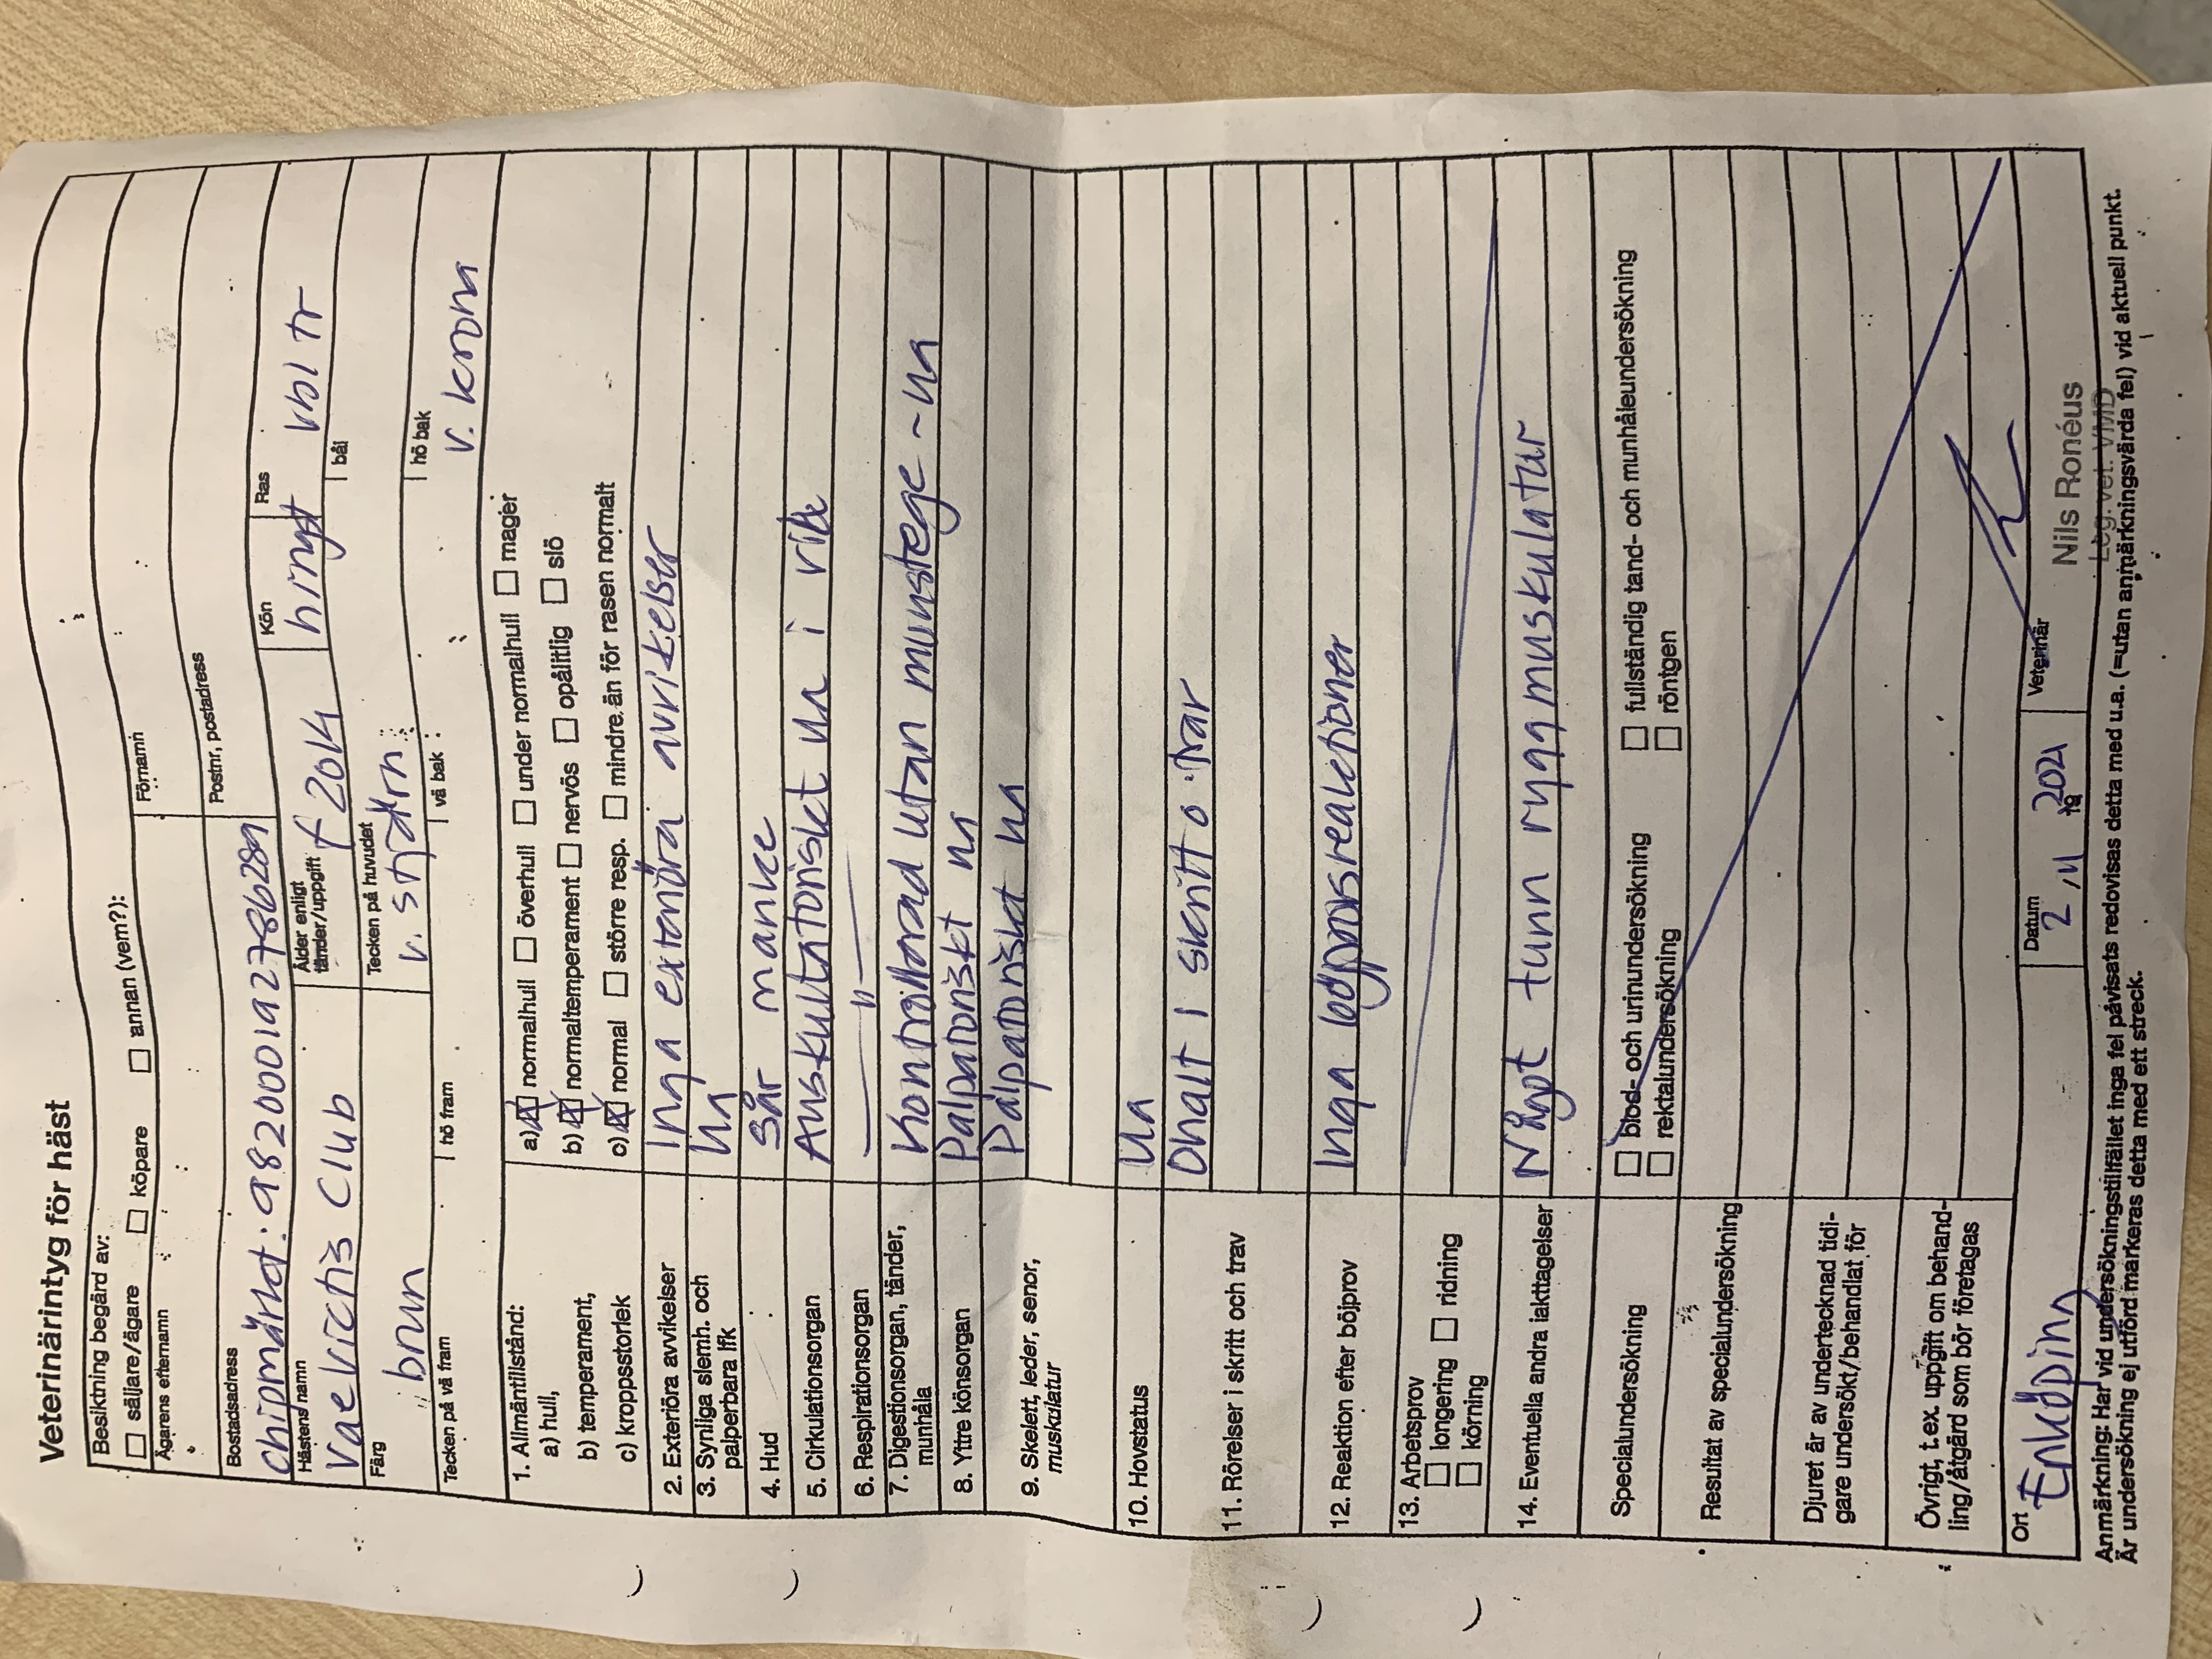 Veterinärintyg för häst
Besiktning begärd av:
säljare/ägare köpare annan (vem?):
Ägarens efternamn Förnamn
Bostadsadress Postnr, postadress
chipmärkt: 982000192786289
Hästens namn Ålder enligt tänder/uppgift Kön Ras
Vae Victis Club f 2014 hingst vbl tr
Färg Tecken på huvudet bål
brun v. stjärn
Tecken på vä fram hö fram vä bak hö bak
v. krona
1. Allmäntillstånd:
a) hull, a) normalhull överhull under normalhull mager
b) temperament, b) normaltemperament nervös opålitlig slö
c) kroppsstorlek c) normal större resp. mindre än för rasen normalt
2. Exteriöra avvikelser Inga exteriöra avvikelser
3. Synliga slemh. och palperbara lfk Ua
4. Hud Sår manke
5. Cirkulationsorgan Auskultatoriskt ua i vila
6. Respirationsorgan — " —
7. Digestionsorgan, tänder, munhåla Kontrollerad utan munstege - ua
8. Yttre könsorgan Palpatoriskt ua
9. Skelett, leder, senor, muskulatur Palpatoriskt ua
10. Hovstatus Ua
11. Rörelser i skritt och trav Ohalt i skritt o. trav
12. Reaktion efter böjprov Inga böjprovsreaktioner
13. Arbetsprov
longering ridning
körning
14. Eventuella andra iakttagelser Något tunn ryggmuskulatur
Specialundersökning blod- och urinundersökning fullständig tand- och munhåleundersökning
rektalundersökning röntgen
Resultat av specialundersökning
Djuret är av undertecknad tidi-
gare undersökt/behandlat för
Övrigt, t.ex. uppgift om behand-
ling/åtgärd som bör företagas
Ort Datum Veterinär
Enköping 2 /11 19 2021 Nils Ronéus
Leg. vet. VMD
Anmärkning: Har vid undersökningstillfället inga fel påvisats redovisas detta med u.a. (=utan anmärkningsvärda fel) vid aktuell punkt.
Är undersökning ej utförd markeras detta med ett streck.